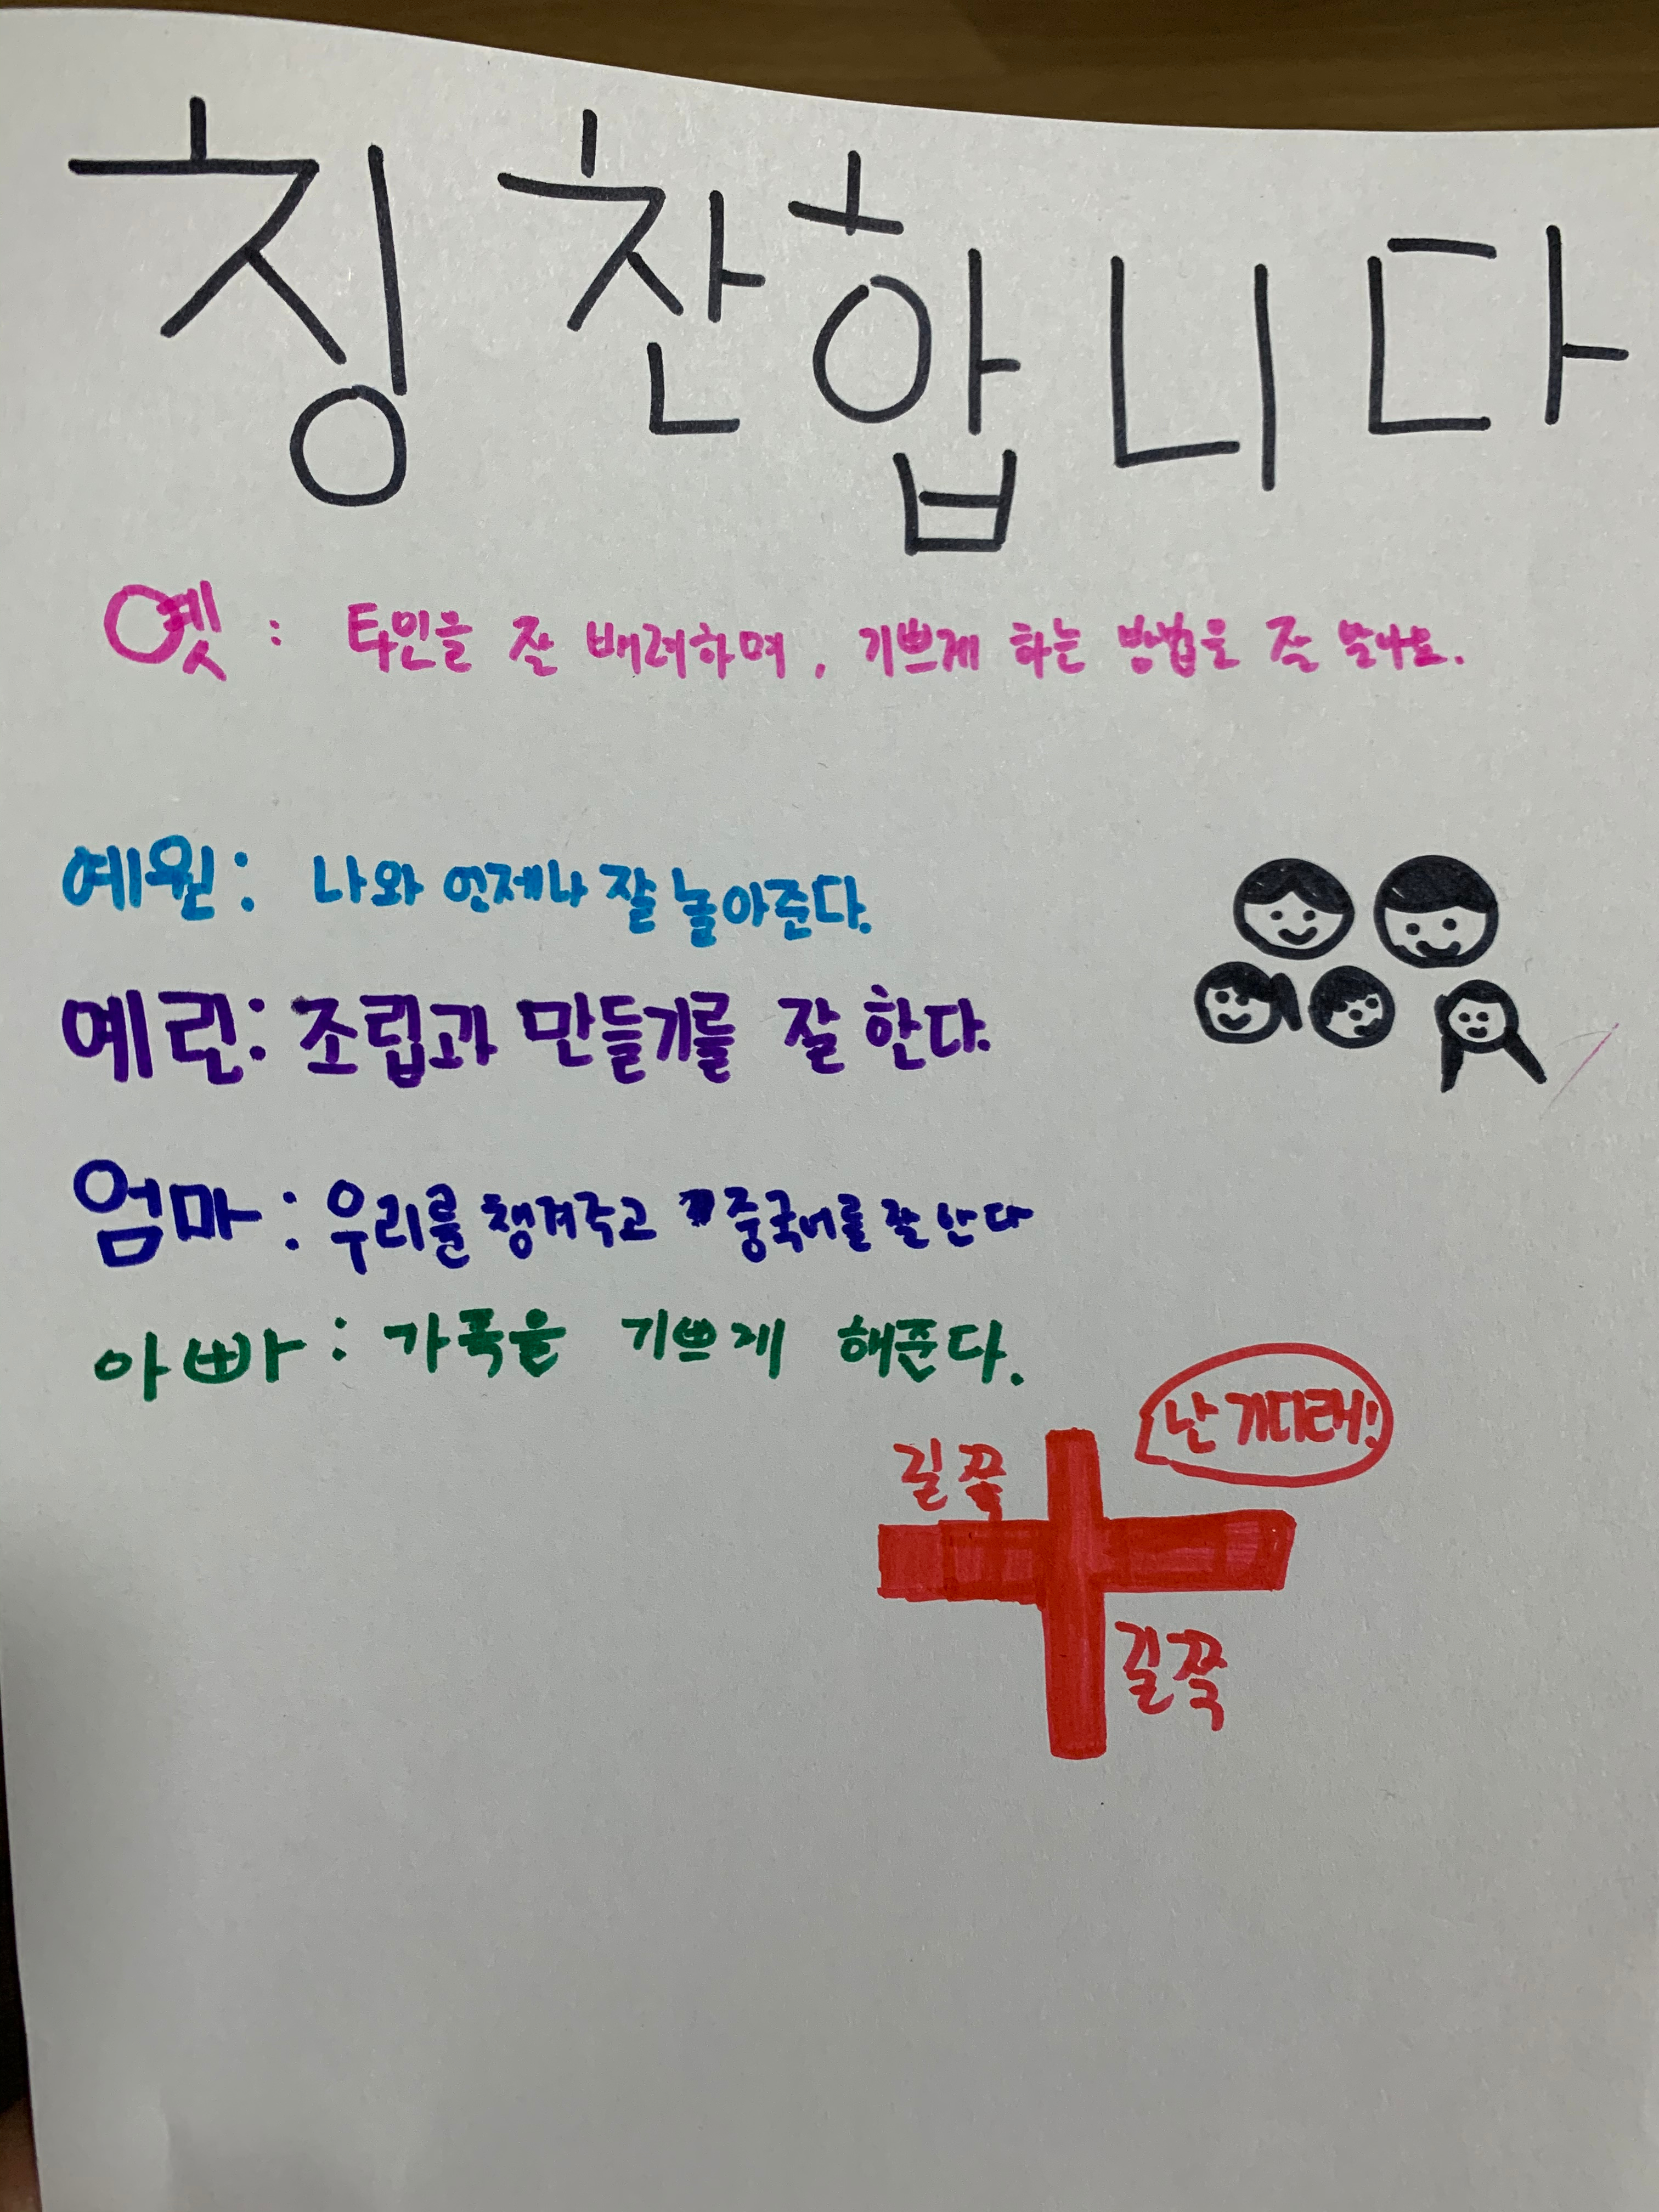 칭찬합니다
옛 : 타인을 잘 배려하며, 기쁘게 하는 방법을 잘 알아요.
예원 : 나와 언제나 잘 놀아준다.
예린 : 조립과 만들기를 잘 한다.
엄마 : 우리를 챙겨주고 중국어를 잘 한다
아빠 : 가족을 기쁘게 해준다.
난 기다래!
길쭉
길쭉